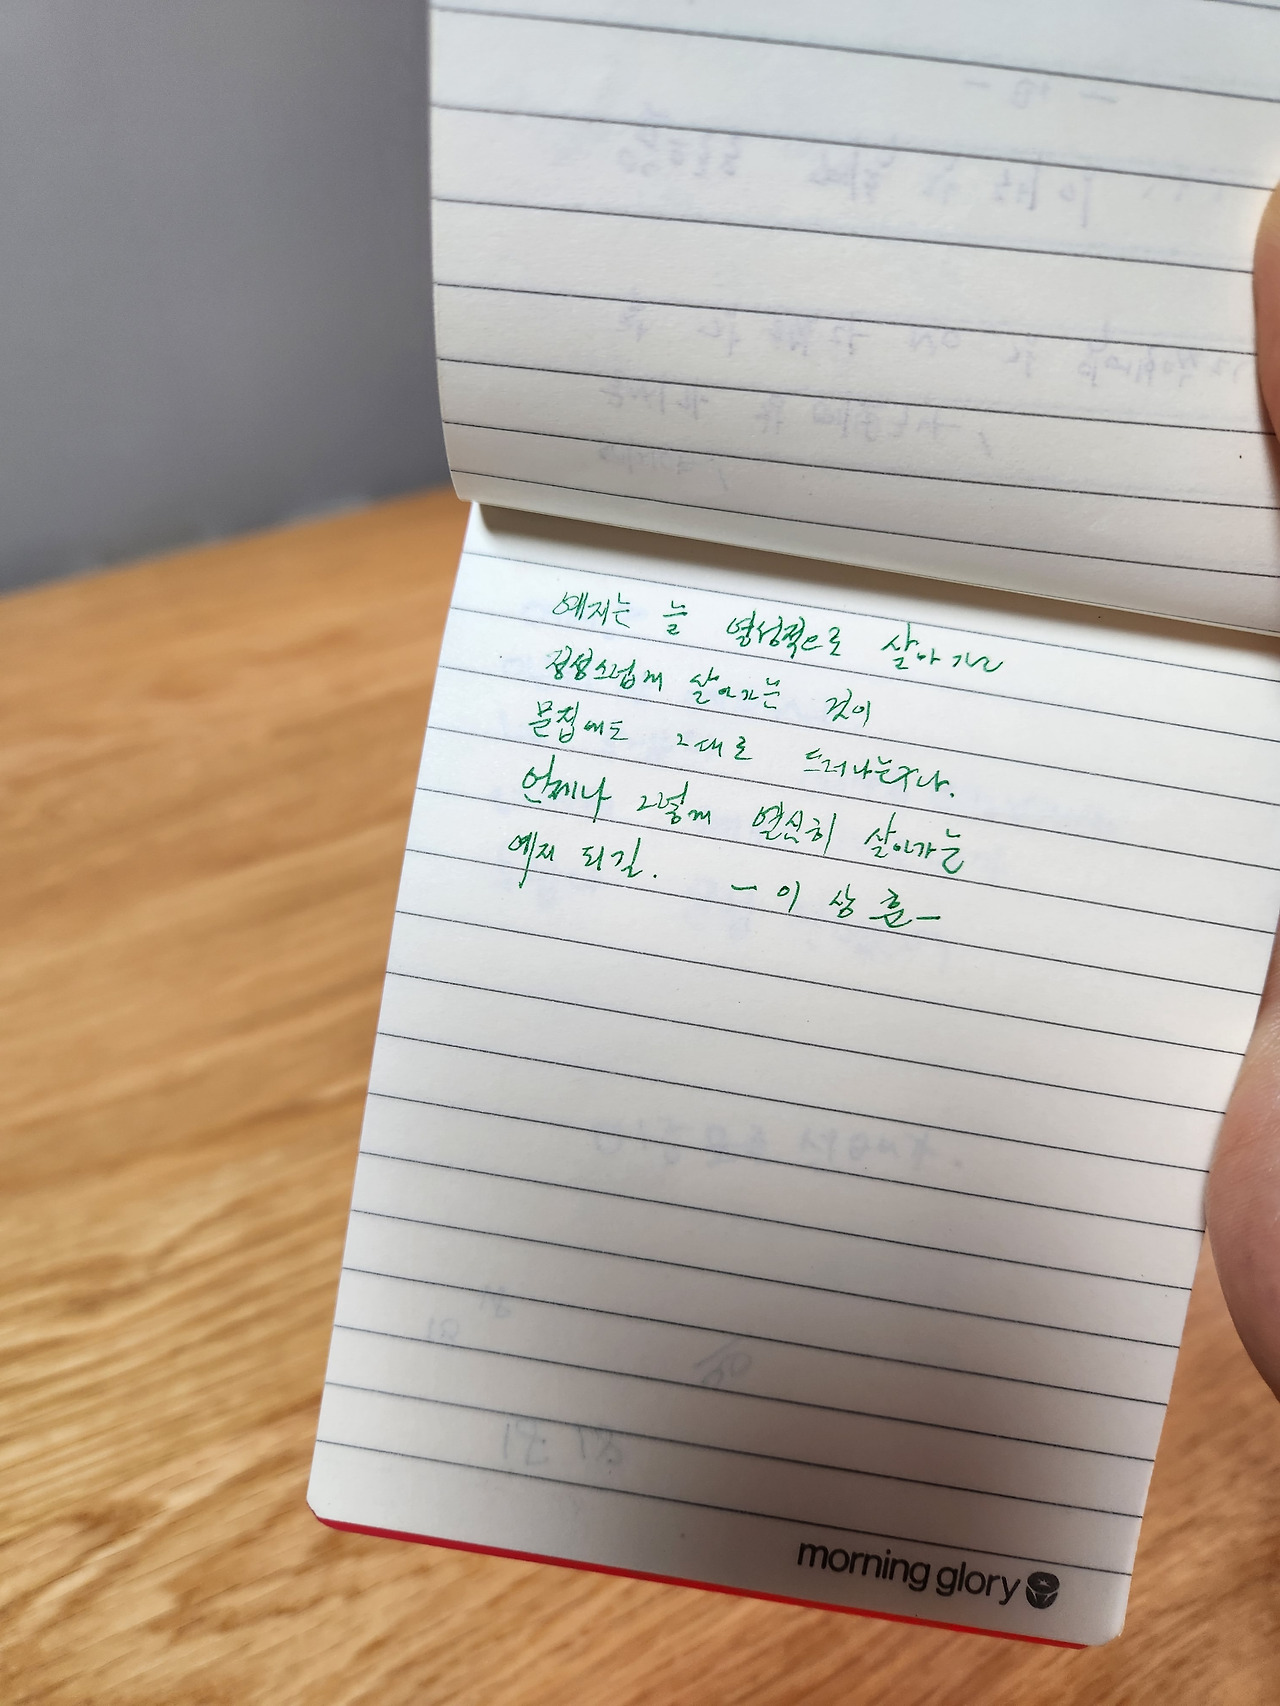 예지는 늘 열성적으로 살아가고
정성스럽게 살아가는 것이
문집에도 그대로 드러나는구나.
언제나 그렇게 열심히 살아가는
예지 되길. - 이상훈 -
morning glory